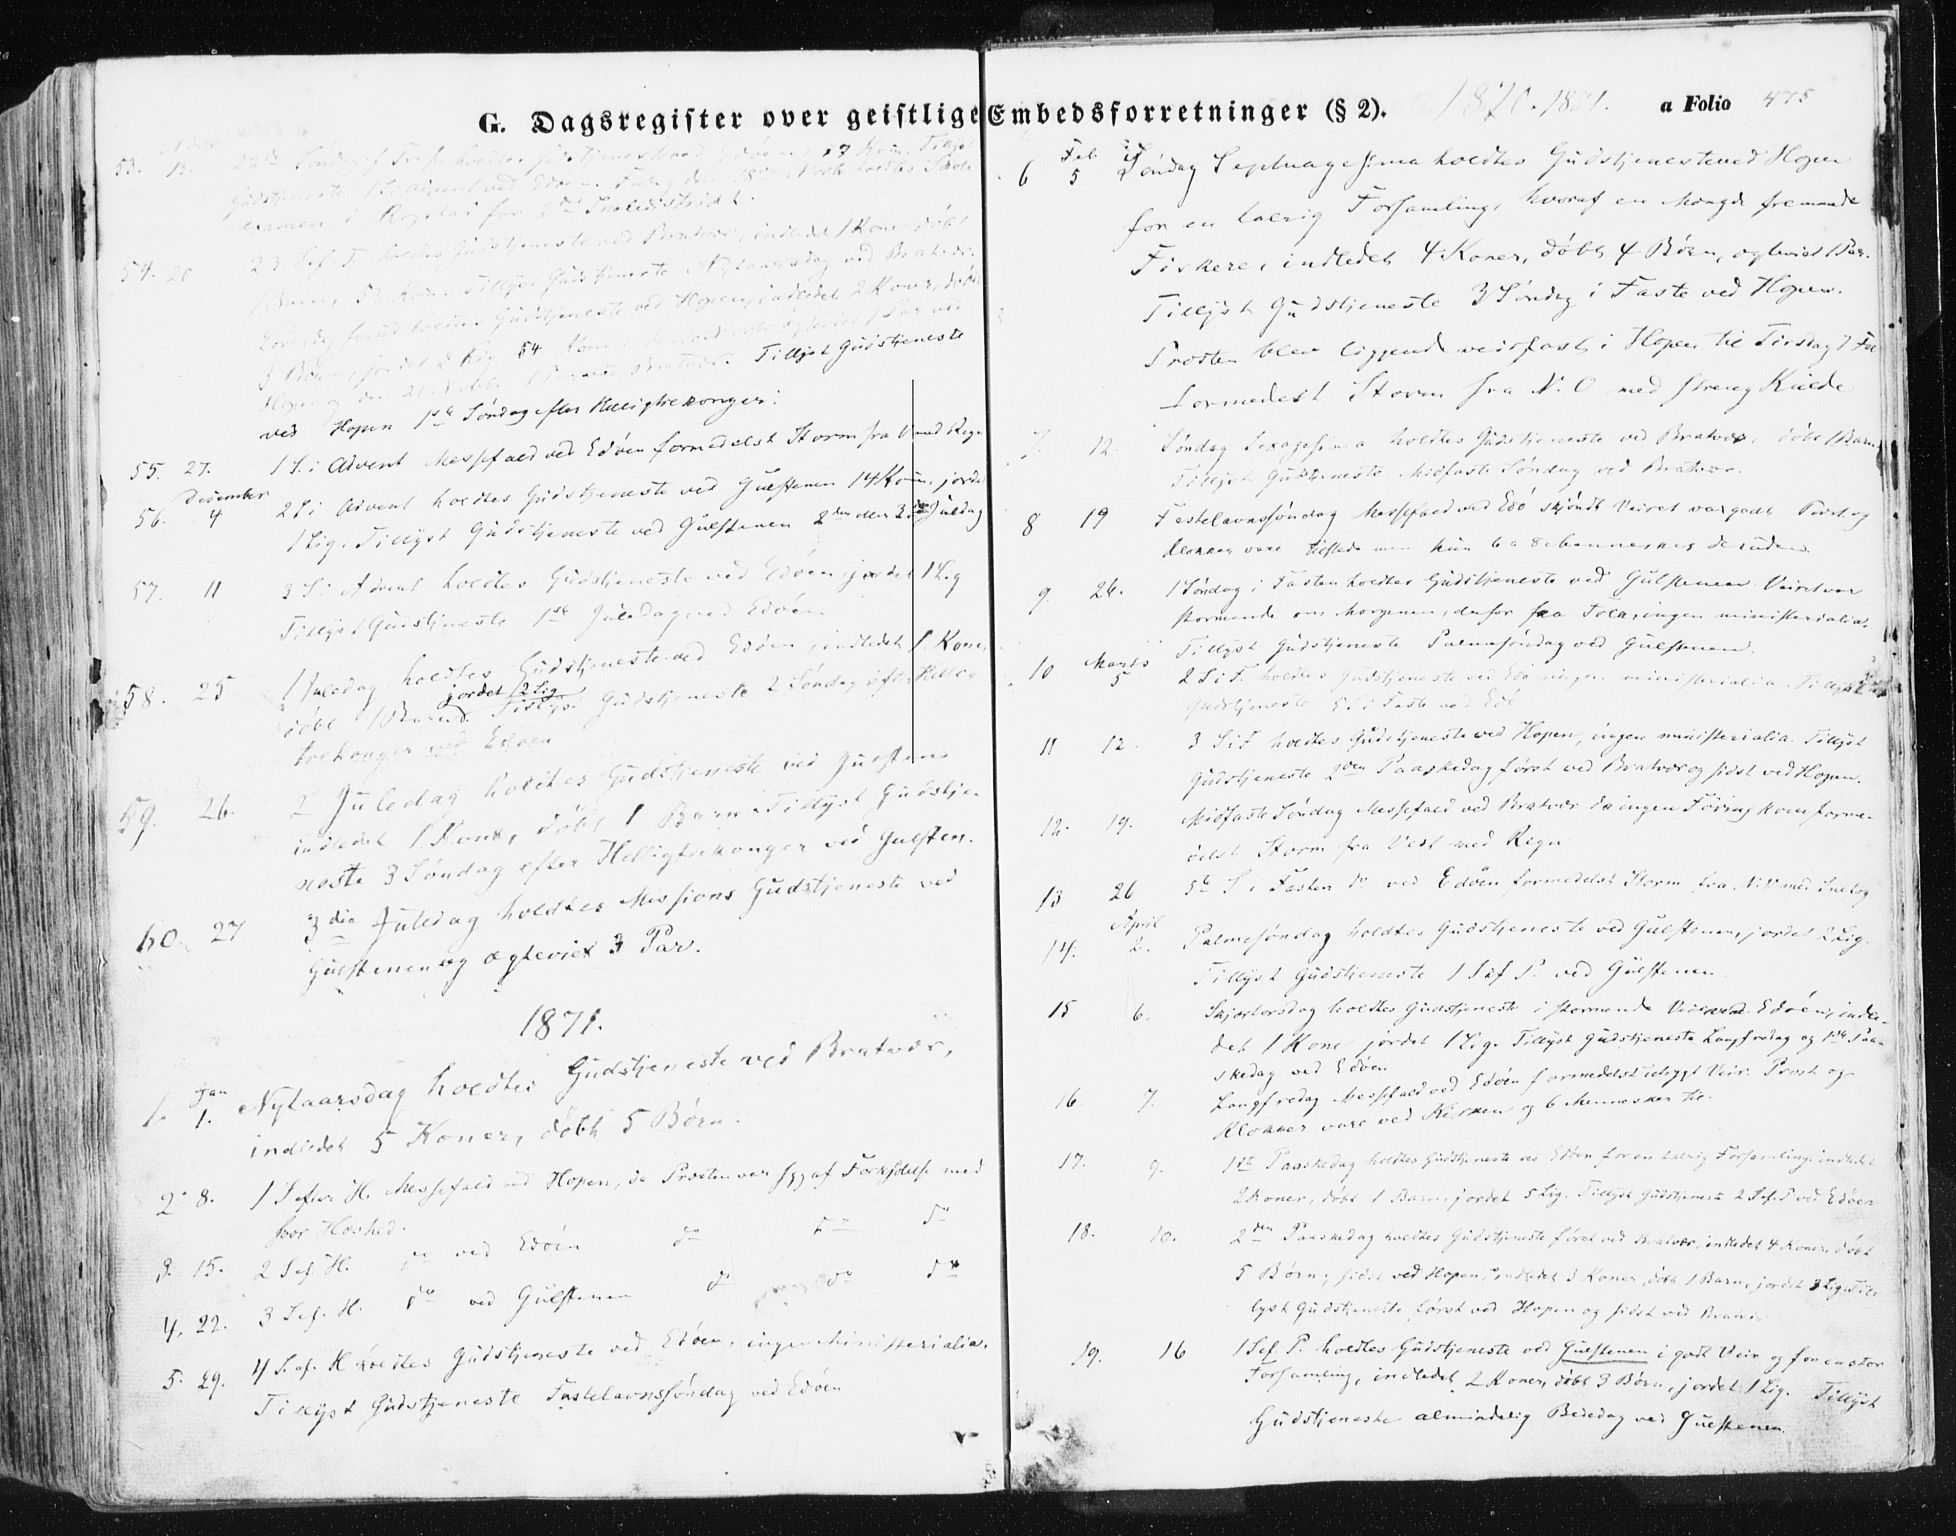 G. Dagsregister over geistlige Embedsforretninger (§ 2). 1870. 1871. a Folio 475
53. 13. Gudstjeneste
Gudstjeneste 1 S. i Advent ved Edøen. Fredag den 18de Novbr holdtes
for 2det Skoledistrikt.
54. 20 23 S. ef. T. holdtes Gudstjeneste ved Bratvær, indledet 1 Kone døbt
1 Barn, 53 Kom. Tillyst Gudstjeneste Nytaarsdag ved Bratvær.
Gudstjeneste ved Hopen, indledet 2 Koner, døbt
3 Børn, jordet 2 Lig 54 Kom.
Hopen og Bratvær. Tillyst Gudstjeneste
ved Hopen 1ste Søndag efter Helligtrekonger.
55. 27. 1 S. i Advent Messefald ved Edøen formedelst Storm fra V med Regn
December
56. 4 2 S i Advent holdtes Gudstjeneste ved Gulstenen 14 Kom. jordet
1 Lig. Tillyst Gudstjeneste ved Gulstenen 2den eller 3die Juledag
57. 11 3 S. i Advent holdtes Gudstjeneste ved Edøen, jordet 1 Lig
Tillyst Gudstjeneste 1ste Juledag ved Edøen
58. 25 1 Juledag holdtes Gudstjeneste ved Edøen, indledet 1 Kone,
jordet 2 Lig
døbt 1 Barn. Tillyst Gudstjeneste 2 Søndag efter Hellig-
trekonger ved Edøen
59. 26. 2 Juledag holdtes Gudstjeneste ved Gulstenen
indledet 1 Kone, døbt 1 Barn. Tillyst Gudstje-
neste 3 Søndag efter Helligtrekonger ved Gulsten.
60. 27 3die Juledag holdtes Missions Gudstjeneste ved
Gulstenen og ægteviet 3 Par.
1871.
Jan
1. 1. Nytaarsdag holdtes Gudstjeneste ved Bratvær,
indledet 5 Koner, døbt 5 Børn.
2. 8. 1 S efter H. Messefald ved Hopen, da Provsten var syg af Forkjølelse med
svær Hæshed.
3. 15. 2 S. ef. H. do ved Edøen do do do
4. 22. 3 S. ef. H. do ved Gulstenen do do do
5. 29. 4 S. ef. H holdtes Gudstjeneste ved Edøen, ingen Ministerialia.
Tillyst Gudstjeneste Fastelavnssøndag ved Edøen
Feb
6 5 Søndag Septuagesima holdtes Gudstjeneste ved Hopen
for en talrig Forsamling, hvoraf en Mængde fremmede
Fiskere, indledet 4 Koner, døbt 4 Børn, ægteviet 1 Par.
Tillyst Gudstjeneste 3 Søndag i Faste ved Hopen.
Provsten blev liggende veirfast i Hopen til Tirsdag 7 Feb
formedelst Storm fra N. O med streng Kulde
7. 12. Søndag Sexagesima holdtes Gudstjeneste ved Bratvær, døbt 1 Barn,
Tillyst Gudstjeneste Midfaste Søndag ved Bratvær.
8 19 Fastelavnssøndag Messefald ved Edø skjøndt Veiret var godt Provst og
Klokker vare tilstede men kun 6 a 8 Mennesker desuden.
9. 26. 1 Søndag i Fasten holdtes Gudstjeneste ved Gulstenen Veiret var
stormende om Morgenen, derfor faa Folk, ingen ministerialia.
Tillyst Gudstjeneste Palmesøndag ved Gulstenen.
10 Marts 5 2 S i F. holdtes Gudstjeneste ved Edø ingen ministerialia. Tillyst
Gudstjeneste 5 S i Faste ved Edø
11 12. 3 S i F holdtes Gudstjeneste ved Hopen, ingen ministerialia. Tillyst
Gudstjeneste 2den Paaskedag først ved Bratvær og sidst ved Hopen.
12. 19. Midfaste Søndag Messefald ved Bratvær da ingen Føring kom forme-
delst Storm fra Vest med Regn
13 26 5te S i Fasten do ved Edøen formedelst Storm fra N.V med Snefog
April
14. 2. Palmesøndag holdtes Gudstjeneste ved Gulstenen, jordet 2 Lig.
Tillyst Gudstjeneste 1 S ef P. ved Gulstenen.
15 6. Skjærtorsdag holdtes Gudstjeneste i stormende Veir ved Edøen, indle-
det 1 Kone jordet 1 Lig. Tillyst Gudstjeneste Langfredag og 1ste Paa-
skedag ved Edøen
16. 7. Langfredag Messefald ved Edøen formedelst utrygt Veir. Provst og
Klokker vare ved Kirken og 6 Mennesker til.
17. 9. 1ste Paaskedag holdtes Gudstjeneste ved Edøen for en talrig Forsamling, indledet
2 Koner, døbt 1 Barn, jordet 5 Lig. Tillyst Gudstjeneste 2 S. ef. P ved Edøen
18. 10. 2den Paaskedag holdtes Gudstjeneste først ved Bratvær, indledet 4 Koner, døbt
5 Børn, sidst ved Hopen, indledet 3 Koner, døbt 1 Barn, jordet 3 Lig. Til-
lyst Gudstjeneste først ved Hopen og sidst ved Bratvær
19. 16 1 S ef. P. holdtes Gudstjeneste ved Gulstenen i godt Veir og for en stor
Forsamling, indledet 2 Koner, døbt 3 Børn, jordet 1 Lig. Tillyst
Gudstjeneste almindelig Bededag ved Gulstenen